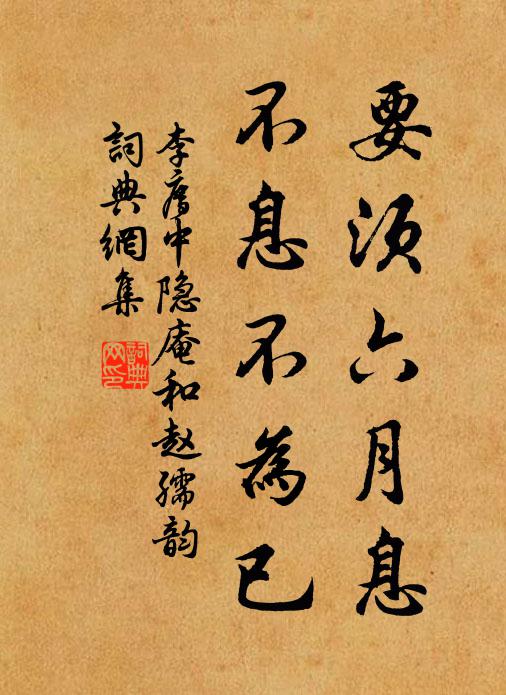 要須六月息
不息不為已
李中隐庵和赵孺韵
詞典網集
詞典网印